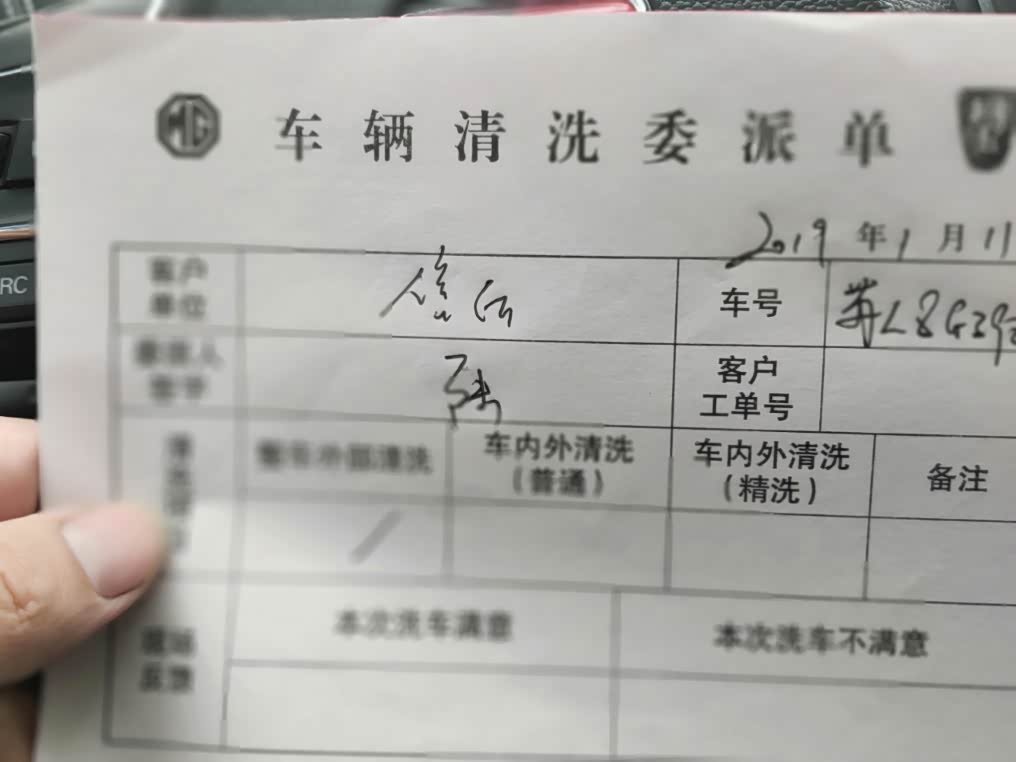 MG 车辆清洗委派单
2019年1月11
客户单位 车号 苏L8G39
客户工单号 陆
整车外部清洗 车内外清洗（普通） 车内外清洗（精洗） 备注
/
本次洗车满意 本次洗车不满意
RC